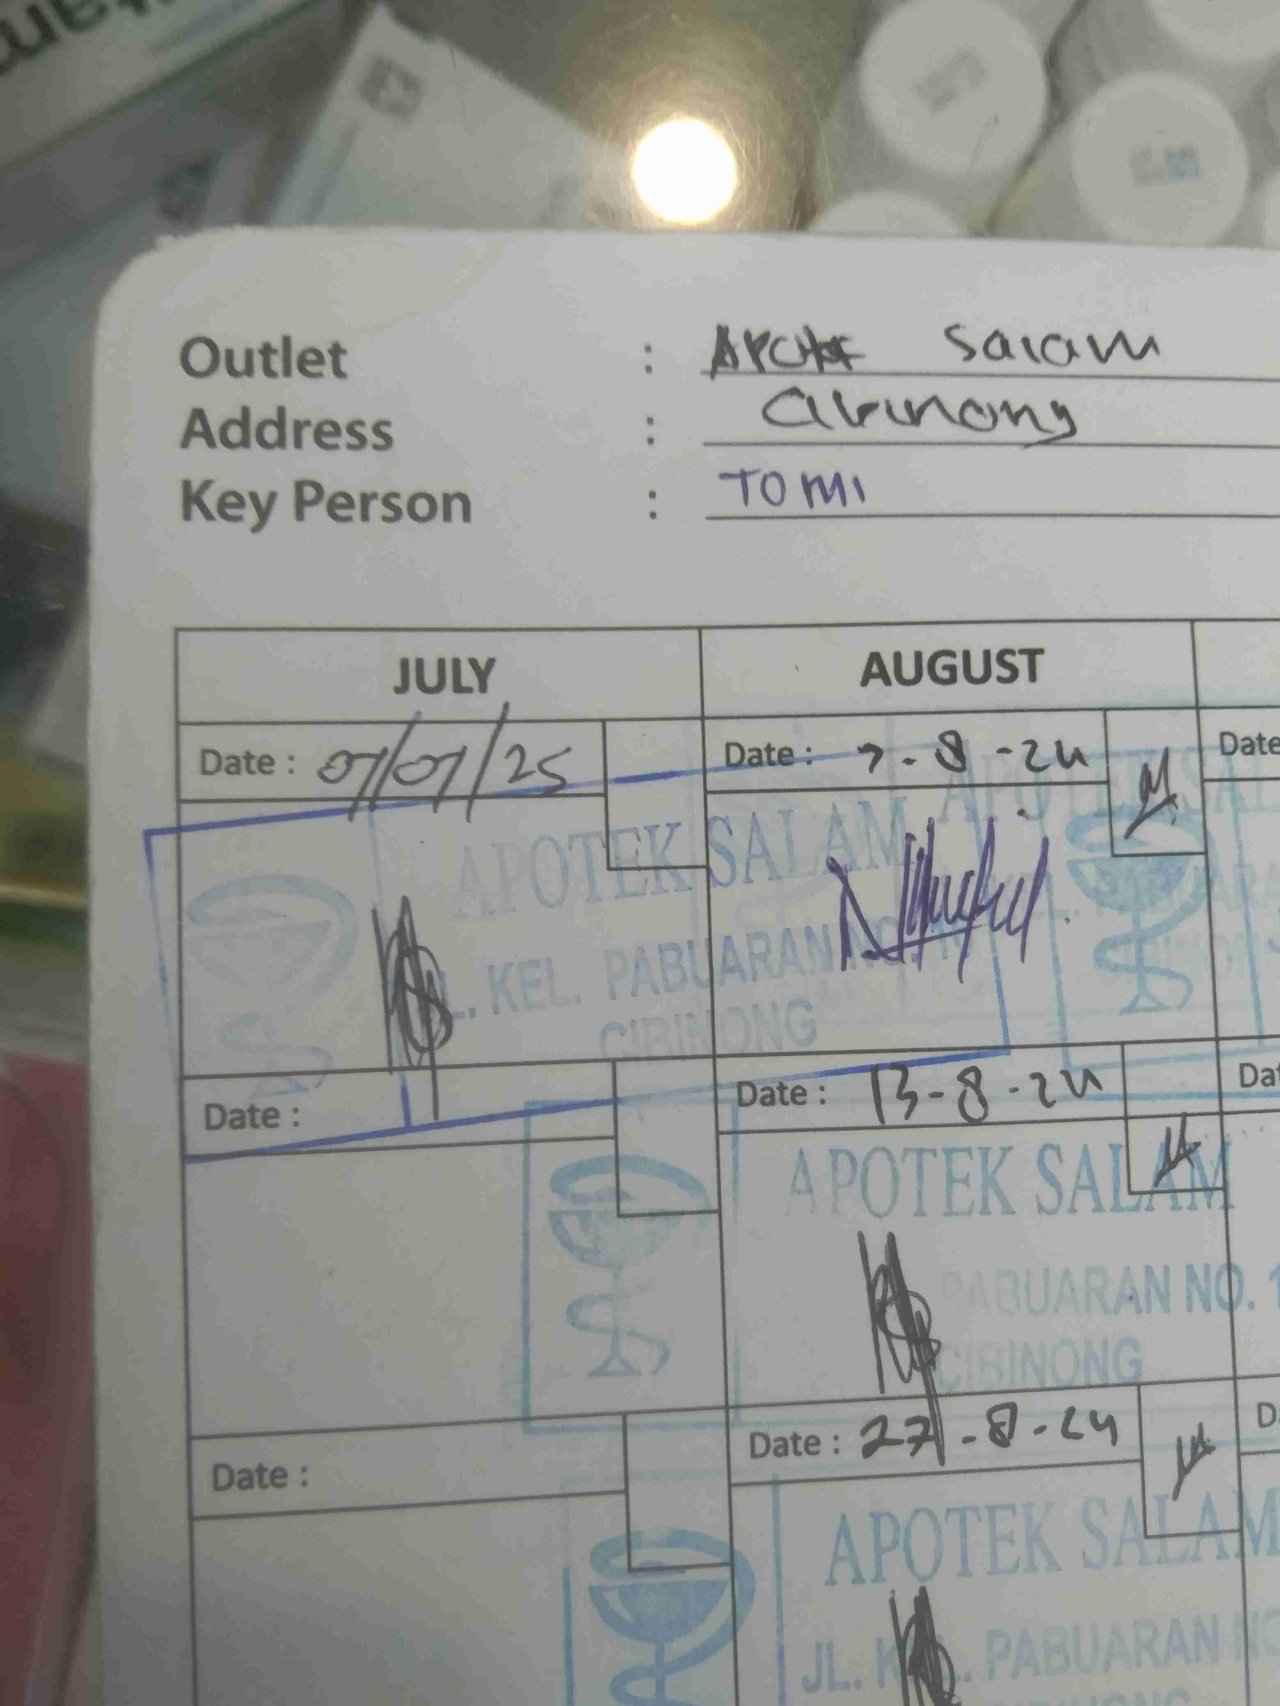 Outlet : Apotek Salam
Address : Cibinong
Key Person : TOMI
JULY
AUGUST
Date : 07/07/25
Date : 7-8-24
Date
APOTEK SALAM
JL. KEL. PABUARAN NO. 1
CIBINONG
Date :
Date : 13-8-24
Da
APOTEK SALAM
PABUARAN NO. 1
CIBINONG
Date :
Date : 27-8-24
D
APOTEK SALAM
JL. KEL. PABUARAN NO